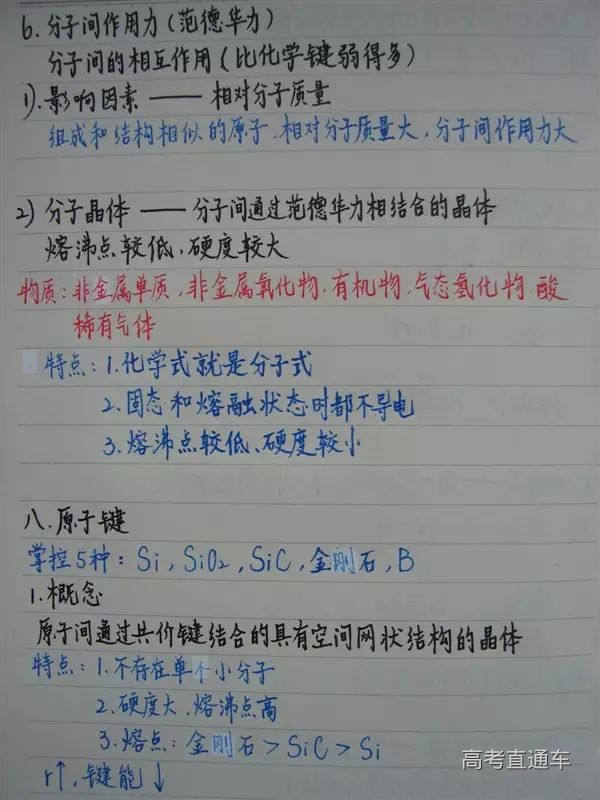 6.分子间作用力(范德华力)
分子间的相互作用(比化学键弱得多)
1).影响因素 —— 相对分子质量
组成和结构相似的原子.相对分子质量大,分子间作用力大
2)分子晶体 —— 分子间通过范德华力相结合的晶体
熔沸点较低,硬度较大
物质:非金属单质,非金属氧化物.有机物,气态氢化物.酸
稀有气体
特点:1.化学式就是分子式
2.固态和熔融状态时都不导电
3.熔沸点较低、硬度较小
八.原子键
掌控5种:Si,SiO2,SiC,金刚石,B
1.概念
原子间通过共价键结合的具有空间网状结构的晶体
特点:1.不存在单个小分子
2.硬度大.熔沸点高
3.熔点:金刚石>SiC>Si
r↑,键能↓
高考直通车